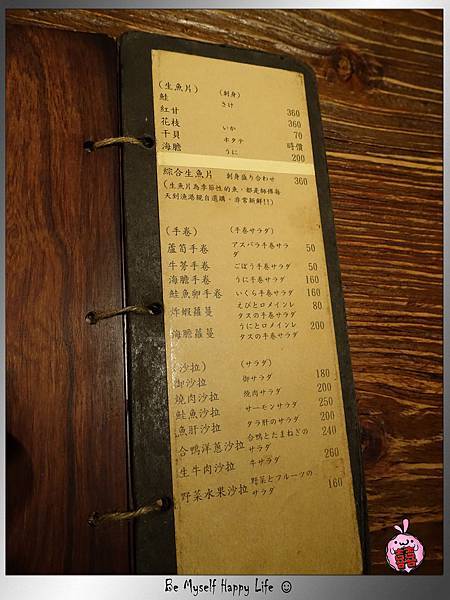 (生魚片) (刺身)
鮭 さけ
紅甘 360
花枝 いか 360
干貝 ホタテ 70
海膽 うに 時價
200
綜合生魚片 刺身盛り合わせ 360
(生魚片為季節性的魚,都是師傅每
天到漁港親自選購,非常新鮮!!)
(手卷) (手巻サラダ)
蘆筍手卷 アスパラ手巻サラダ 50
牛蒡手卷 ごぼう手巻サラダ 50
海膽手卷 うに手巻サラダ 160
鮭魚卵手卷 いくら手巻サラダ 160
炸蝦蘿蔓 えびとロメインレタスの手巻サラダ 80
海膽蘿蔓 うにとロメインレタスの手巻サラダ 200
(沙拉) (サラダ)
御沙拉 御サラダ 180
燒肉沙拉 燒肉サラダ 200
鮭魚沙拉 サーモンサラダ 250
魚肝沙拉 タラ肝のサラダ 200
合鴨洋蔥沙拉 合鴨とたまねぎのサラダ 240
生牛肉沙拉 牛サラダ 260
野菜水果沙拉 野菜とフルーツのサラダ 160
囍
Be Myself Happy Life ☺